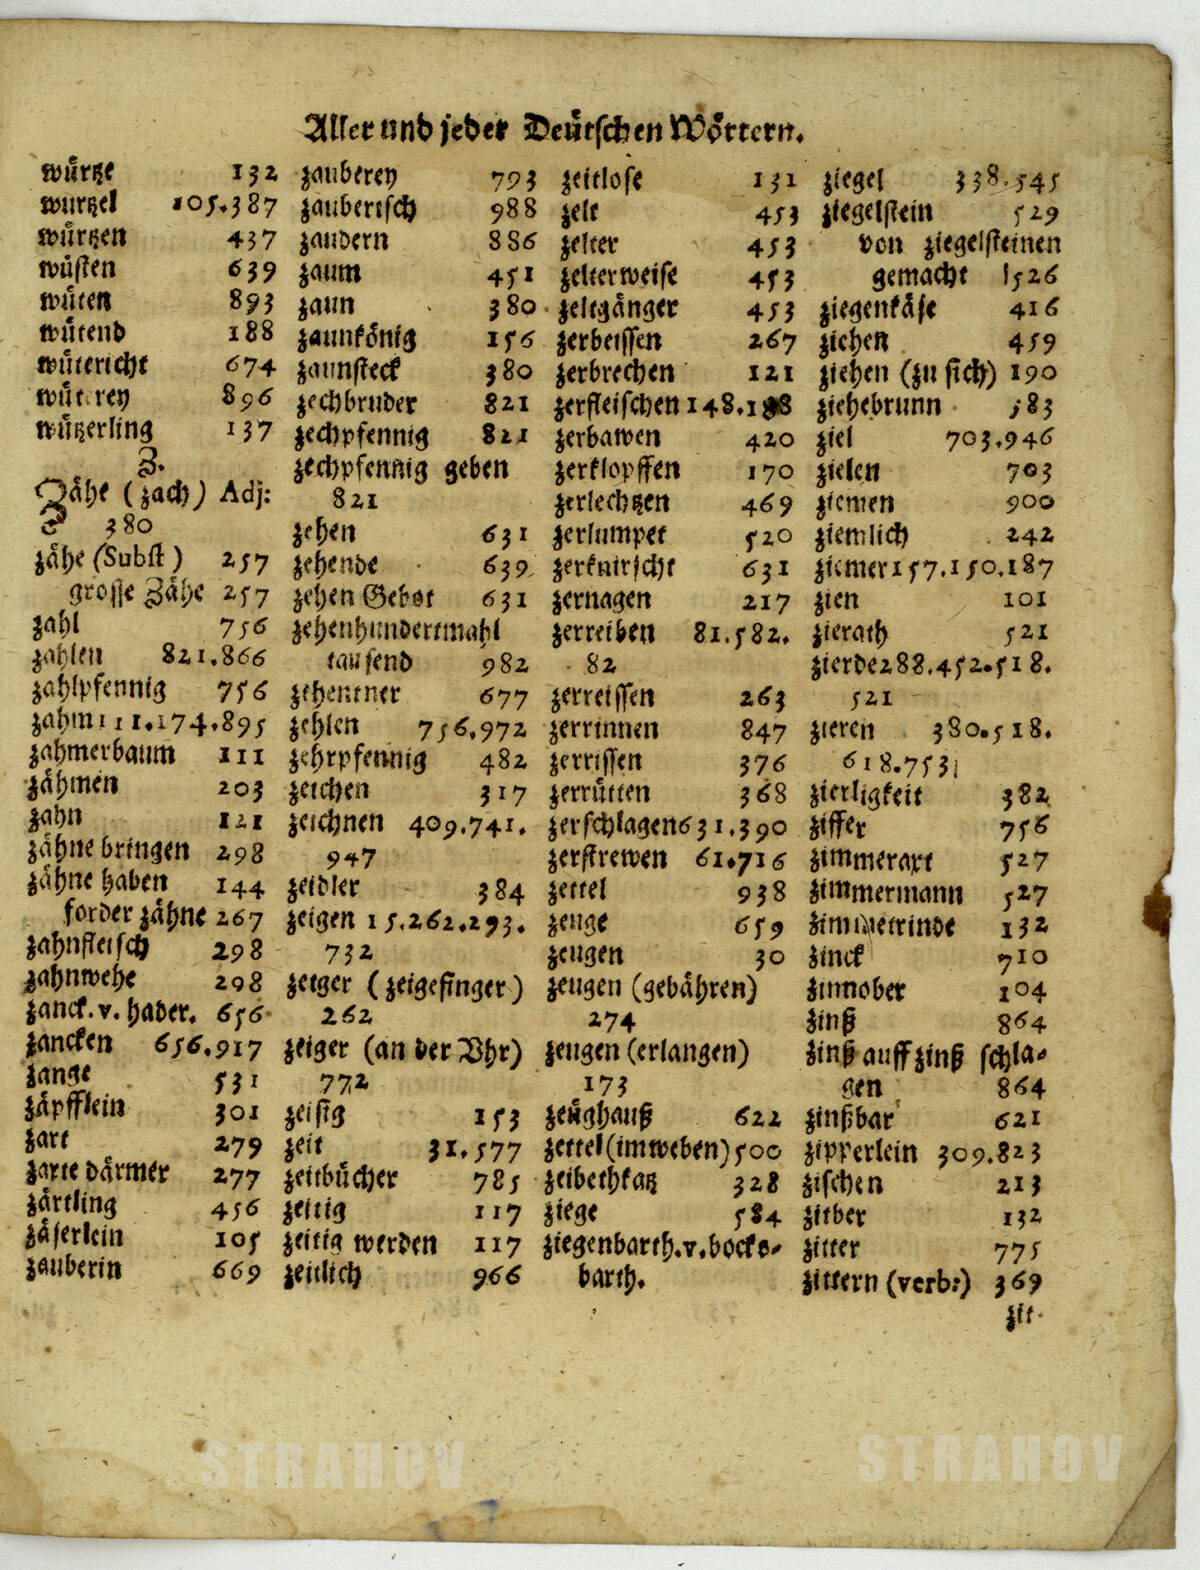 Aller und jeder Deütschen Wörtern.
würtze 132
wurtzel 105.387
würtzen 437
wüsten 639
wüten 893
wütend 188
wüterichт 674
wüterey 896
wützerling 137
Z.
Zähe (zach) Adj:
380
zähe (Subst) 257
grosse Zähe 257
zahl 756
zahlen 821.866
zahlpfennig 756
zahm 111.174.895
zahmerbaum 111
zähmen 203
zahn 121
zähne bringen 298
zähne haben 144
forder zähne 267
zahnfleisch 298
zahnwehe 298
zanck. v. hader. 656
zancken 656.917
zange 531
zäpfflein 301
zart 279
zarte därmer 277
zärtling 456
zäserlein 105
zauberin 669
zauberey 793
zauberisch 988
zaudern 886
zaum 451
zaun 380
zaunkönig 156
zaunsteck 380
zechbruder 821
zechpfennig 821
zechpfennig geben
821
zehen 631
zehende 639
zehen Gebot 631
zehenhundertmahl
tausend 982
zehentner 677
zehlen 756.972
zehrpfennig 482
zeichen 317
zeichnen 409.741.
947
zeidler 384
zeigen 15.262.293.
732
zeiger (zeigefinger)
262
zeiger (an der Vhr)
772
zeisig 153
zeit 31.577
zeitbücher 785
zeitig 117
zeitig werden 117
zeitlich 966
zeitlose 131
zelt 453
zelter 453
zelterweise 453
zeltgänger 453
zerbeissen 267
zerbrechen 121
zerfleischen 148.188
zerbawen 420
zerklopffen 170
zerlechtzen 469
zerlumpet 520
zerknirscht 631
zernagen 217
zerreiben 81.582.
82
zerreissen 263
zerrinnen 847
zerrissen 376
zerrütten 368
zerschlagen 631.390
zerstrewen 61.716
zettel 938
zeuge 659
zeugen 30
zeugen (gebähren)
274
zeugen (erlangen)
173
zeüghauß 622
zettel (im weben) 500
zeibethkatz 328
ziege 584
ziegenbarth. v. bocks-
barth.
ziegel 338.545
ziegelstein 529
von ziegelsteinen
gemacht 526
ziegenkäse 416
ziehen 459
ziehen (zu sich) 190
ziehebrunn 583
ziel 703.946
zielen 703
ziemen 900
ziemlich 242
ziemer 157.150.187
zien 101
zierath 521
zierde 288.452.518.
521
zieren 380.518.
618.753
zierligkeit 382
ziffer 756
zimmeraxt 527
zimmermann 527
zimmetrinde 132
zinck 710
zinnober 104
zinß 864
zinß auff zinß schla-
gen 864
zinßbar 621
zipperlein 309.823
zischen 213
zitber 132
zitter 775
zittern (verb:) 369
zit-
STRAHOV STRAHOV